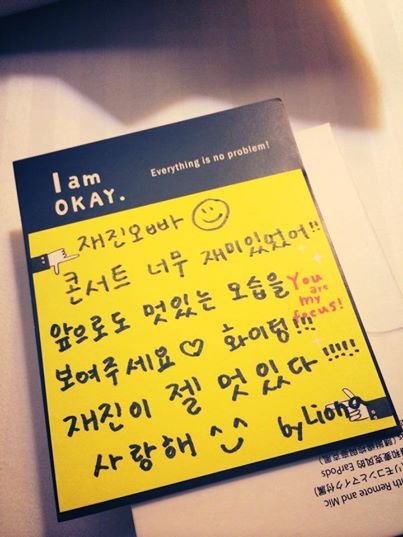 I am
OKAY.
Everything is no problem!
재진오빠
콘서트 너무 재미있었어!!
앞으로도 멋있는 모습을
You
are
my
focus!
보여주세요♡ 화이팅!!!
재진이 젤 멋있다!!!!!
사랑해 ^_^
by Liona
with Remote and Mic